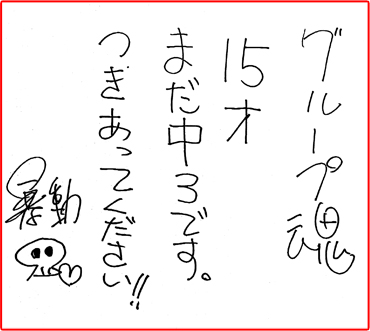 グループ魂
15才
まだ中3です。
つきあってください!!
暴動